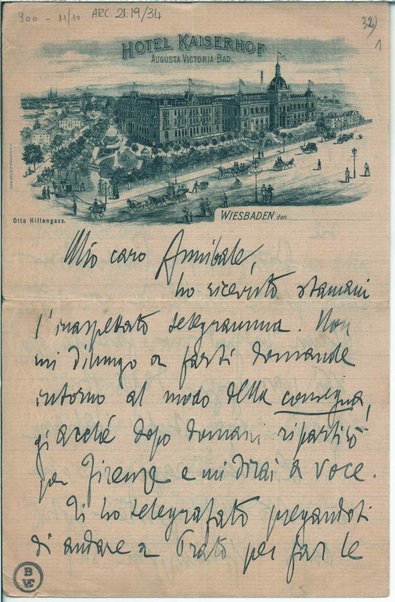 900 - 11/10 ARC 21.19/34
32)
1
HOTEL KAISERHOF
AUGUSTA VICTORIA-BAD.
Otto Hillengass.
WIESBADEN, den
Mio caro Annibale,
ho ricevuto stamani
l'inaspettato telegramma. Non
mi dilungo a farti domande
intorno al modo della consegna,
giacché dopo domani ripartirò
per Firenze e mi dirai a voce.
Ti ho telegrafato pregandoti
di andare a Prato per far le